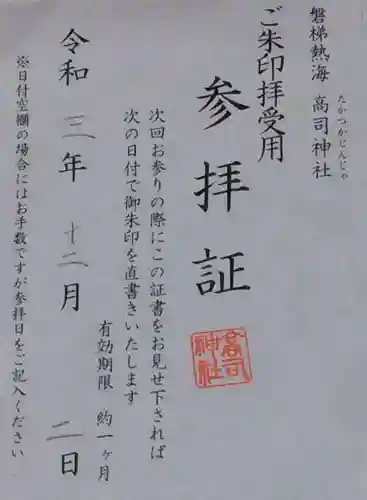 磐梯熱海 高司神社
たかつかじんじゃ
ご朱印拝受用
参拝証
次回お参りの際にこの証書をお見せ下されば
次の日付で御朱印を直書きいたします
有効期限 約一ヶ月
令和三年十二月二日
※日付空欄の場合にはお手数ですが参拝日をご記入ください
高司
神社